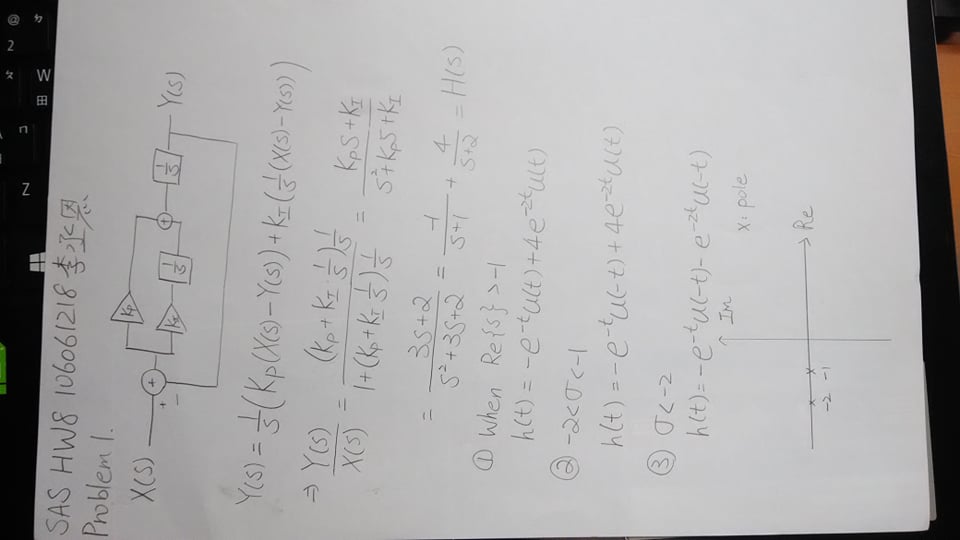 SAS HW8 106061218 李承恩
Problem 1.
X(s) + - + Kp KI 1/s + 1/s Y(s)
Y(s) = 1/s (Kp(X(s)-Y(s)) + KI(1/s(X(s)-Y(s)))
⇒ Y(s)/X(s) = (Kp+KI 1/s)1/s / 1+(Kp+KI 1/s)1/s = KpS+KI / S²+KpS+KI
= 3S+2 / S²+3S+2 = -1/S+1 + 4/S+2 = H(s)
① When Re{s} > -1
h(t) = -e^-t u(t) + 4e^-2t u(t)
② -2<σ<-1
h(t) = -e^-t u(-t) + 4e^-2t u(t)
③ σ<-2
h(t) = -e^-t u(-t) - e^-2t u(-t)
Im
x: pole
Re
-2 -1